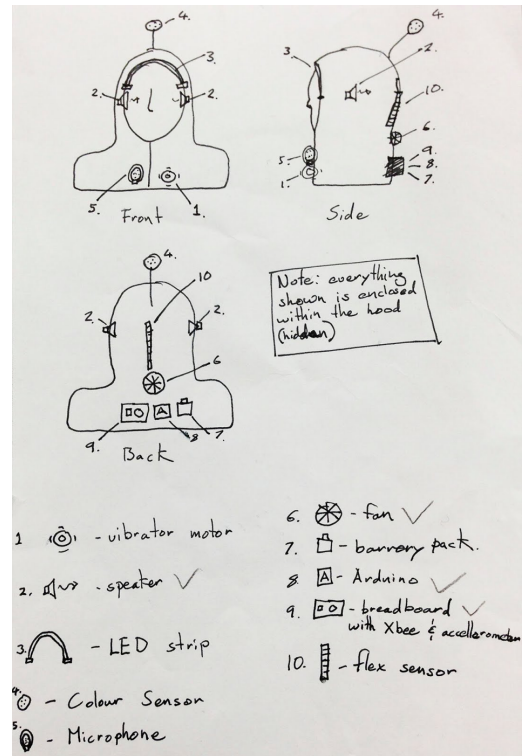 4.
3.
2.
2.
5.
1.
Front
4.
3.
2.
10.
6.
5.
9.
8.
1.
7.
Side
4.
10
2.
2.
6
9.
8.
7.
Back
Note: everything
shown is enclosed
within the hood
(hidden)
1 - vibrator motor
2. - speaker ✓
3. - LED strip
4. - Colour Sensor
5. - Microphone
6. - fan ✓
7. - barrery pack.
8 A - Arduino ✓
9. - breadboard ✓
with Xbee & accellerometer
10. - flex sensor